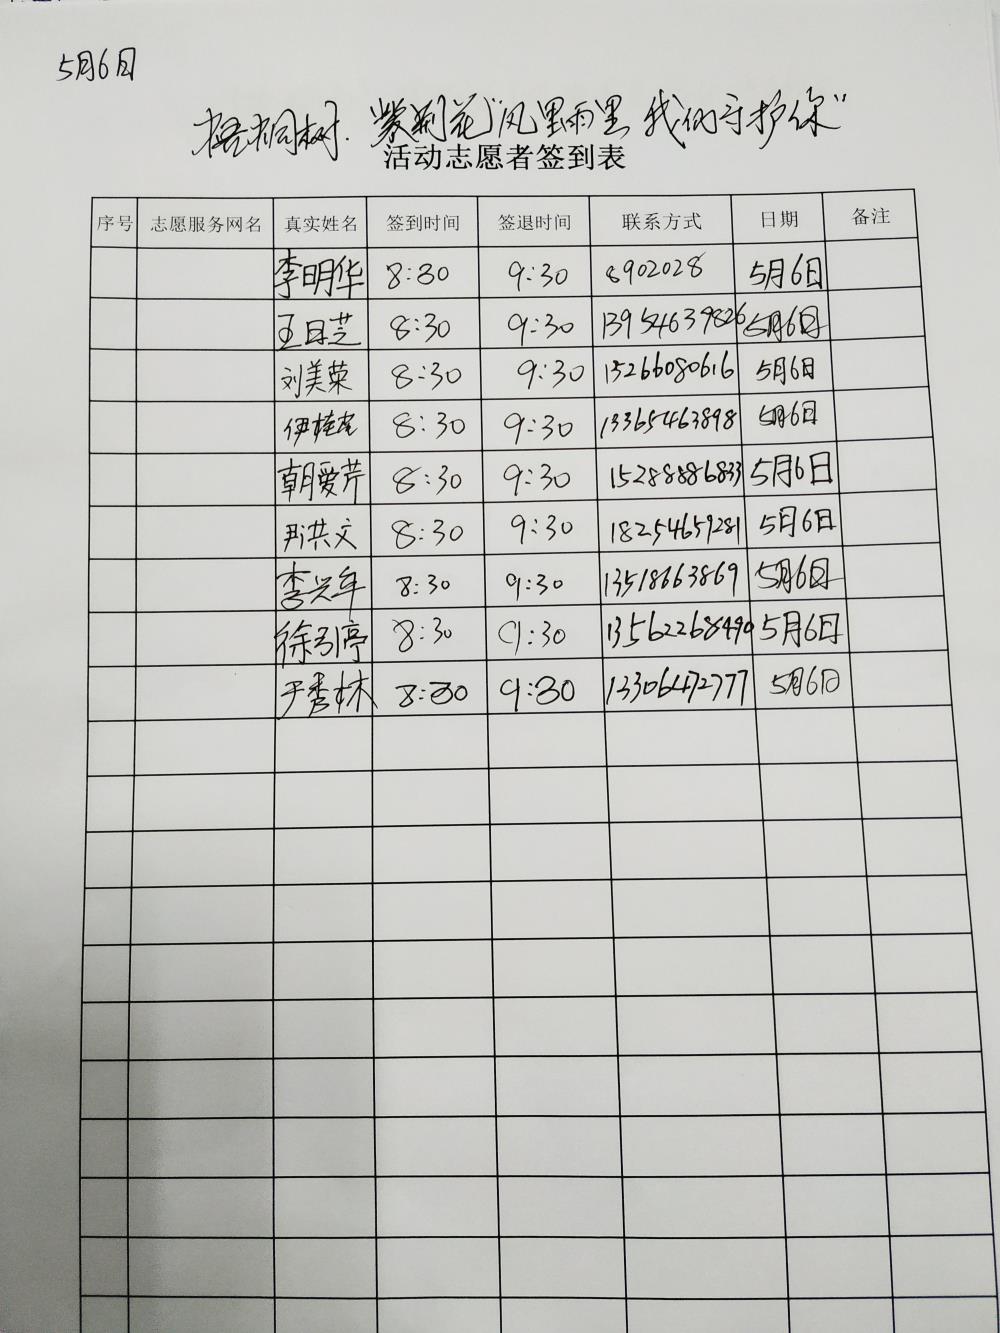 5月6日
梧桐树.“紫荆花”“风里雨里 我们守护你”
活动志愿者签到表
序号 志愿服务网名 真实姓名 签到时间 签退时间 联系方式 日期 备注
李明华 8:30 9:30 8902028 5月6日
王目芝 8:30 9:30 13954639826 5月6日
刘美荣 8:30 9:30 15266080616 5月6日
伊桂 8:30 9:30 13365463898 5月6日
朝爱芹 8:30 9:30 15288886833 5月6日
尹洪文 8:30 9:30 18254659281 5月6日
李兴年 8:30 9:30 13518663869 5月6日
徐引亭 8:30 9:30 13562268490 5月6日
于秀林 8:30 9:30 13306472777 5月6日